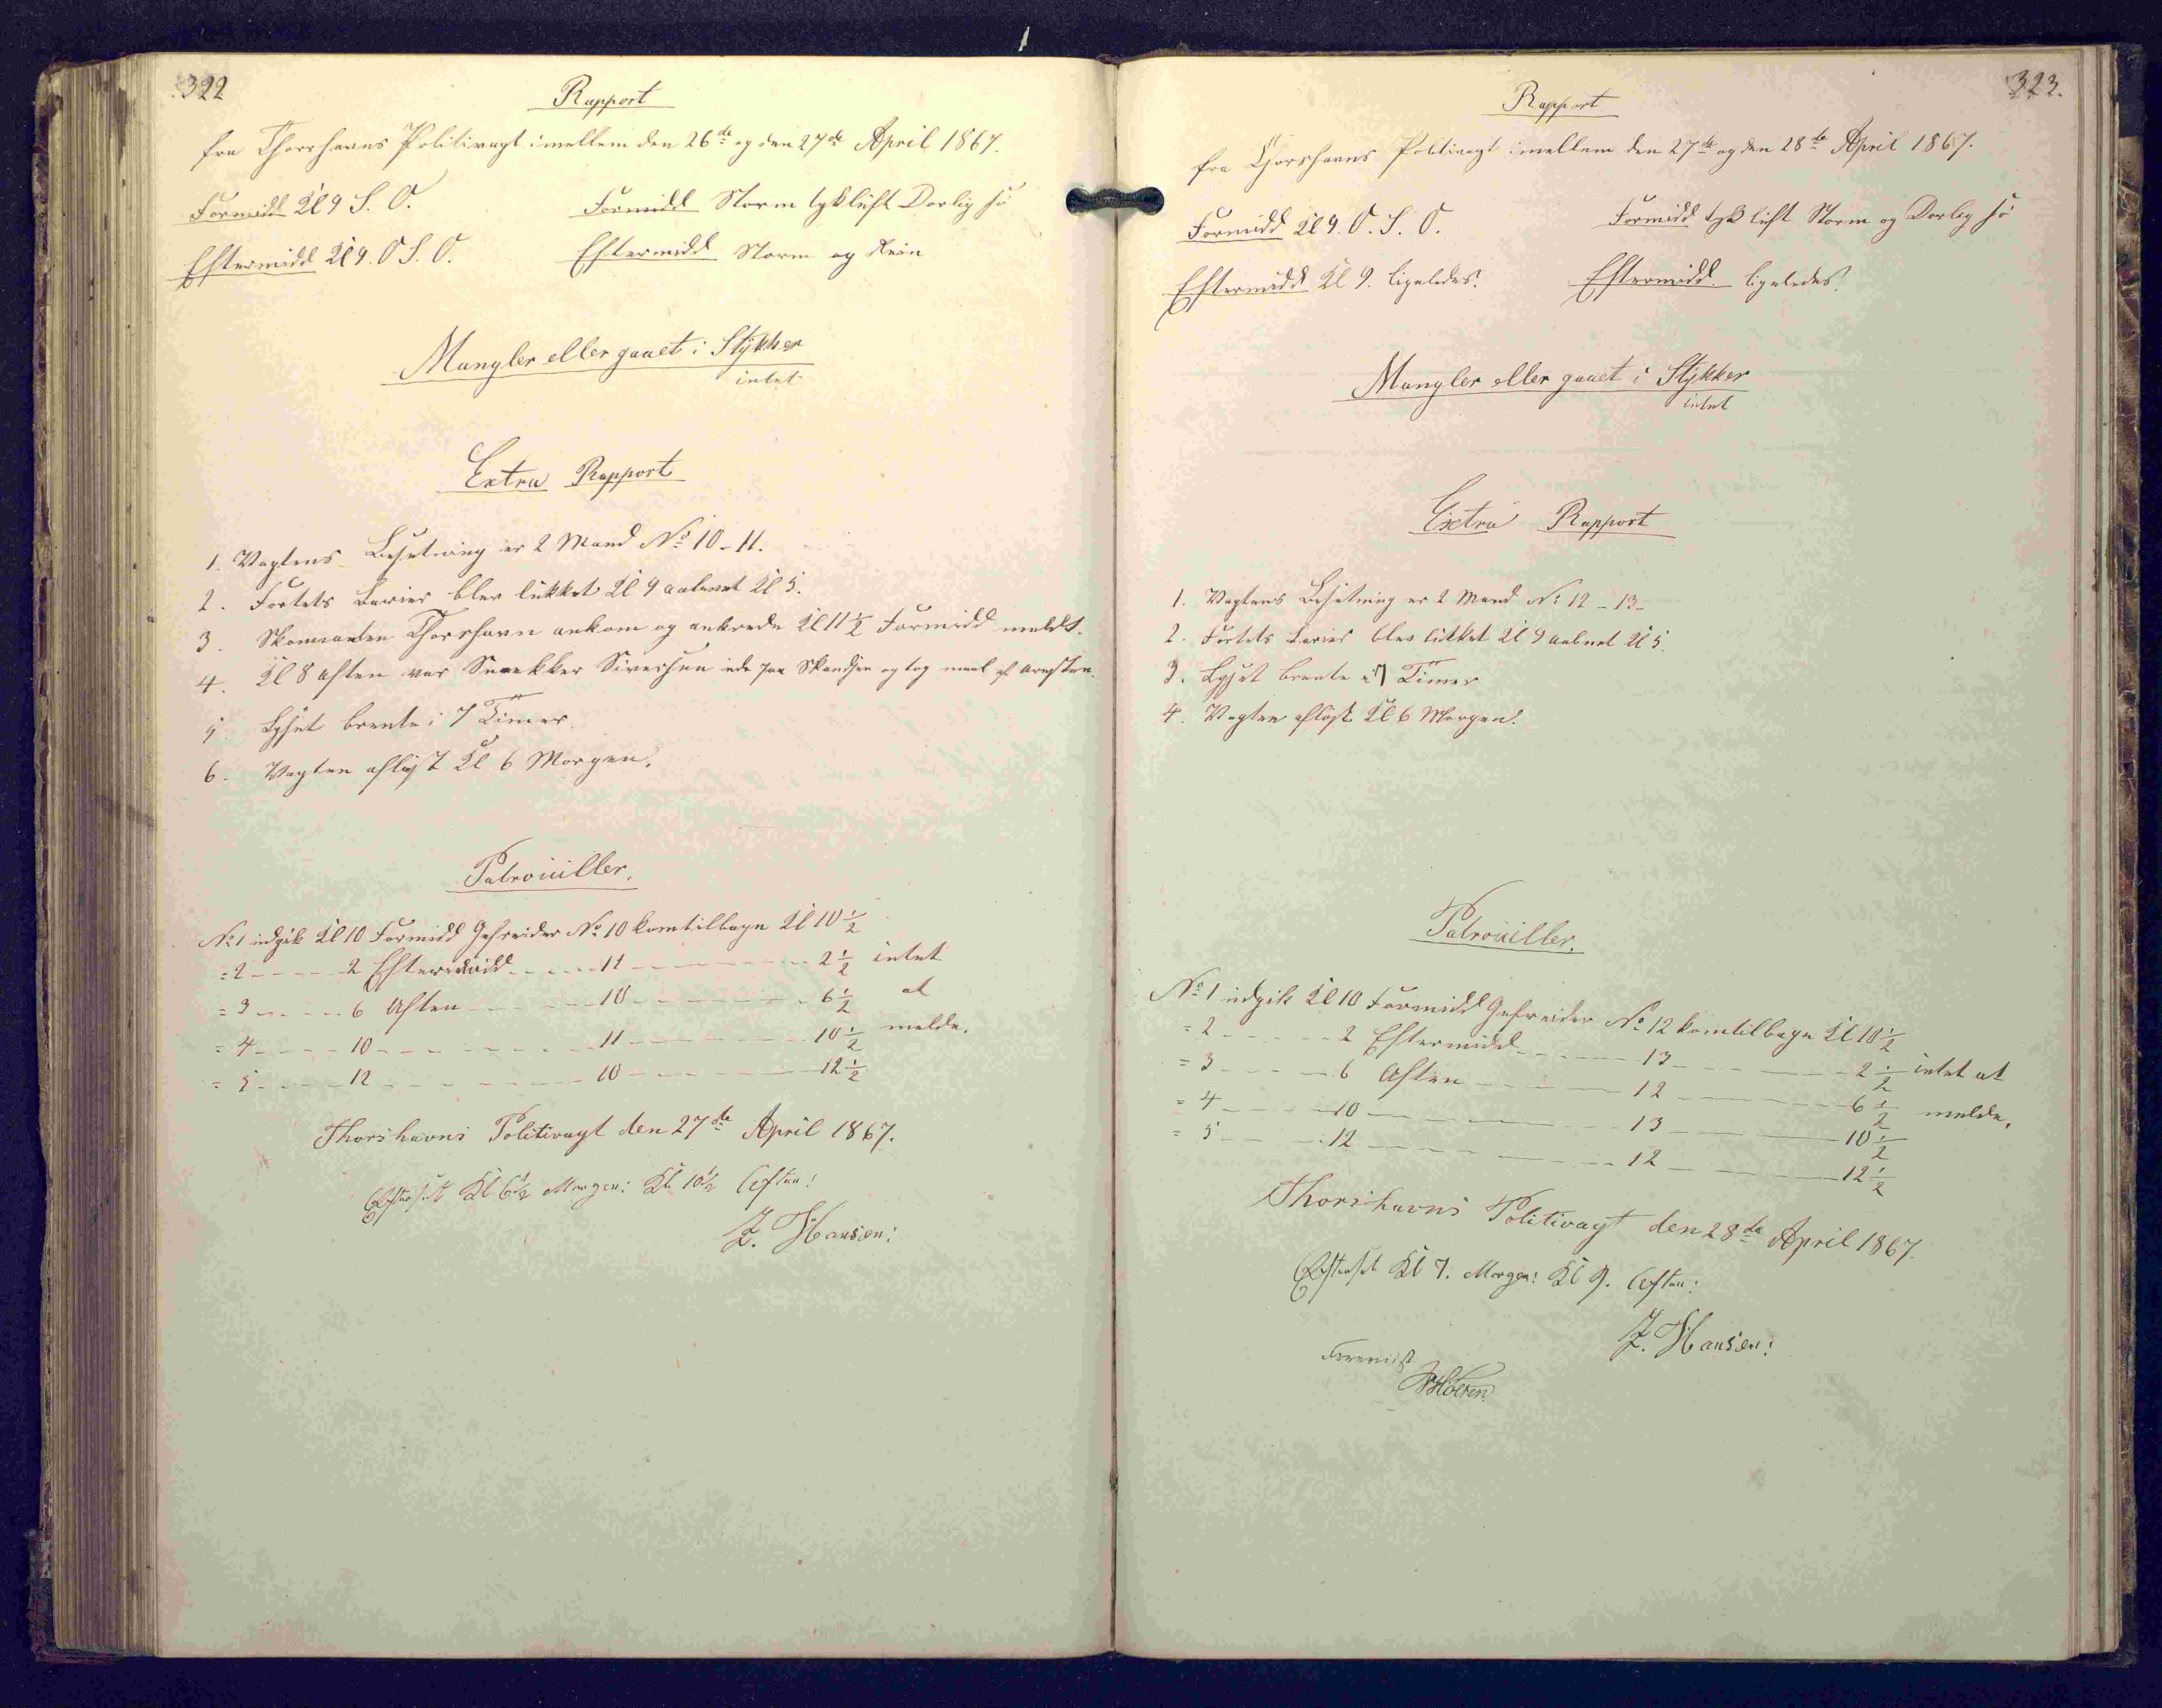 322
Rapport
fra Thorshavns Politivagt imellem den 26de og den 27de April 1867.
Formidd Kl 9 S. O. Formidd Storm tykluft Dorlig sö
Eftermidd Kl 9. O S. O. Eftermidd Storm og Rein
Mangler eller gaaet i Stykker
intet
Extra Rapport
1. Vagtens Besetning er 2 Mand No 10 - 11.
2. Fortets Barier blev lukket Kl 9 aabnet Kl 5.
3. Skonnarten Thorshavn ankom og ankrede Kl 11 1/2 Formidd meldt.
4. Kl 8 Aften var Snekker Siversen inde paa Skandsen og tog maal af Aresten.
5. Lyset brente i 7 Timer.
6. Vagten aflöst Kl 6 Morgen.
Patrouiller.
No 1 indgik Kl 10 Formidd Gefreider No 10 kom tilbage Kl 10 1/2
= 2 - - - - 2 Eftermidd - - - - 11 - - - - 2 1/2 intet
= 3 - - - - 6 Aften - - - - 10 - - - - 6 1/2 at
= 4 - - - - 10 - - - - 11 - - - - 10 1/2 melde.
= 5 - - - - 12 - - - - 10 - - - - 12 1/2
Thorshavns Politivagt den 27de April 1867.
Efterset Kl 6 1/2 Morgen: Kl 10 1/2 Aften:
J. Hansen:
323.
Rapport
fra Thorshavns Politivagt imellem den 27de og den 28de April 1867.
Formidd Kl 9. O. S. O. Formidd tyk luft Storm og Dorlig sö
Eftermidd Kl 9. ligeledes. Eftermidd. ligeledes.
Mangler eller gaaet i Stykker
intet
Extra Rapport
1. Vagtens Besetning er 2 Mand No 12 - 13 -
2. Fortets Barier blev lukket Kl 9 aabnet Kl 5.
3. Lyset brente i 7 Timer
4. Vagten aflöst Kl 6 Morgen.
Patrouiller.
No 1 indgik Kl 10 Formidd Gefreider No 12 kom tilbage Kl 10 1/2
= 2 - - - - 2 Eftermidd - - - - 13 - - - - 2 1/2 intet at
= 3 - - - - 6 Aften - - - - 12 - - - - 6 1/2 melde.
= 4 - - - - 10 - - - - 13 - - - - 10 1/2
= 5 - - - - 12 - - - - 12 - - - - 12 1/2
Thorshavns Politivagt den 28de April 1867.
Efterset Kl 7. Morgen: Kl 9. Aften:
J. Hansen:
Forevist